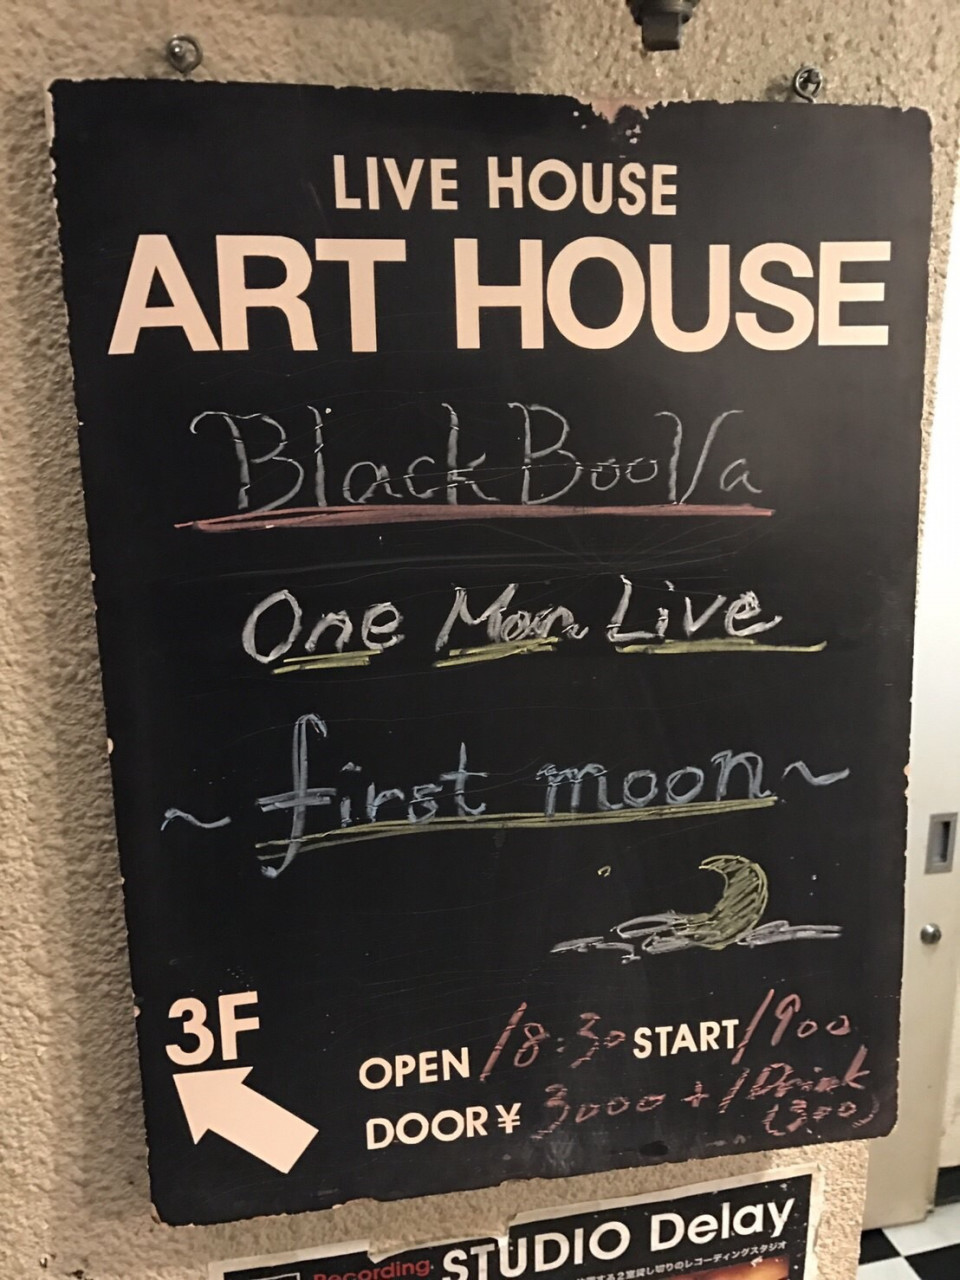 LIVE HOUSE
ART HOUSE
Black BooVa
One Man Live
~first moon~
3F
OPEN 18:30 START 1900
DOOR ¥ 3000 + 1 Drink
(300)
Recording. STUDIO Delay
2室貸し切りのレコーディングスタジオ